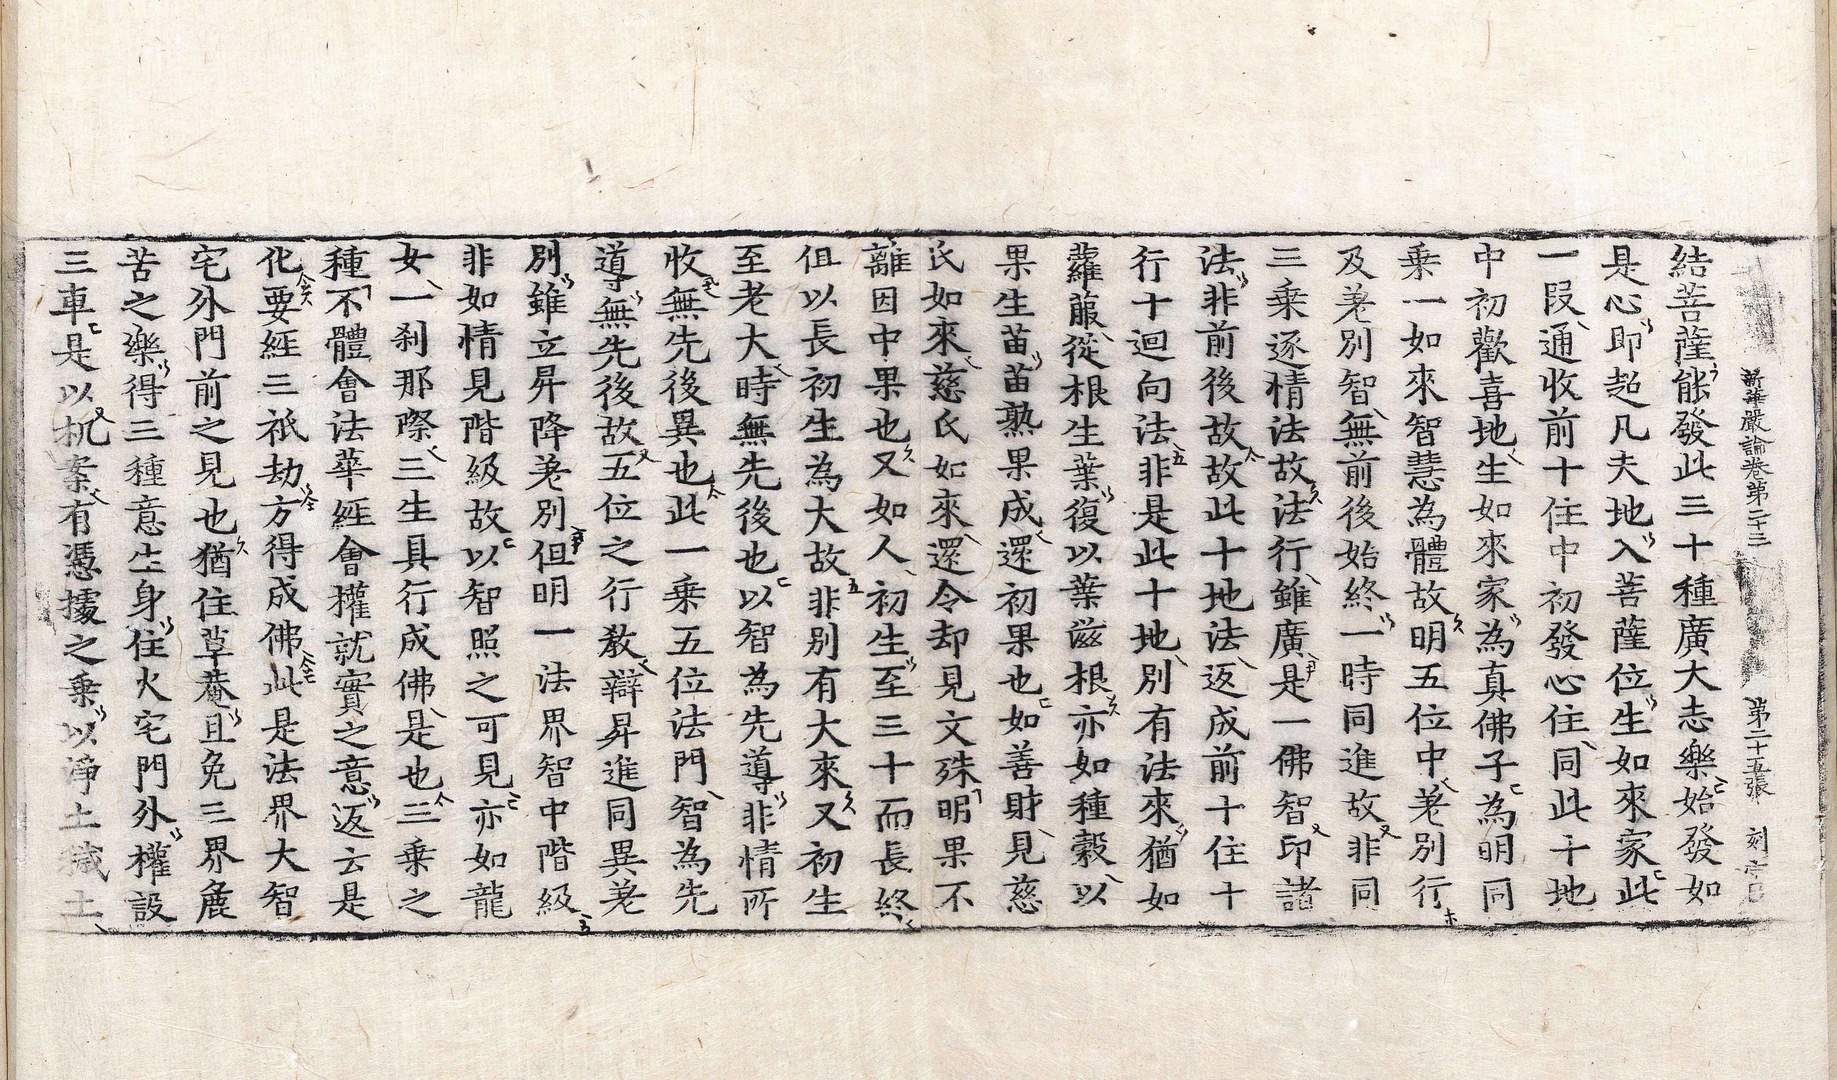 新華嚴論卷第二十三 第二十五張 刻
結菩薩能發此三十種廣大志樂始發如
是心即超凡夫地入菩薩位生如來家此
一段通收前十住中初發心住同此十地
中初歡喜地生如來家為真佛子為明同
乗一如來智慧為體故明五位中差別行
及差別智無前後始終一時同進故非同
三乗逐情法故法行雖廣是一佛智印諸
法非前後故故此十地法返成前十住十
行十迴向法非是此十地別有法來猶如
蘿菔從根生葉復以葉滋根亦如種穀以
果生苗苗熟果成還初果也如善財見慈
氏如來慈氏如來還令却見文殊明果不
離因中果也又如人初生至三十而長終
伹以長初生為大故非別有大來又初生
至老大時無先後也以智為先導非情所
收無先後異也此一乗五位法門智為先
導無先後故五位之行教辯昇進同異差
別雖立昇降差別但明一法界智中階級
非如情見階級故以智照之可見亦如龍
女一刹那際三生具行成佛是也三乗之
種不體會法華經會權就實之意返云是
化要經三祇劫方得成佛此是法界大智
宅外門前之見也猶住草菴且免三界麁
苦之樂得三種意生身住火宅門外權設
三車是以机案有憑據之乗以淨土穢土